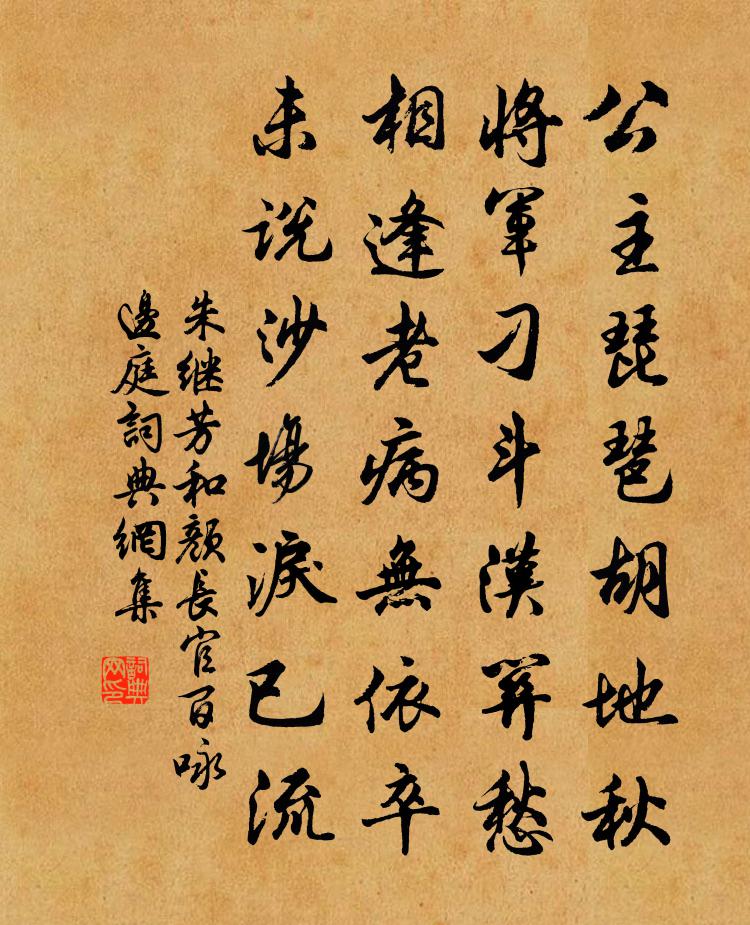 公主琵琶胡地秋
將軍刁斗漢關愁
相逢老病無依卒
未説沙場淚已流
朱继芳和顔長官百咏
邊庭詞典網集
詞典网印